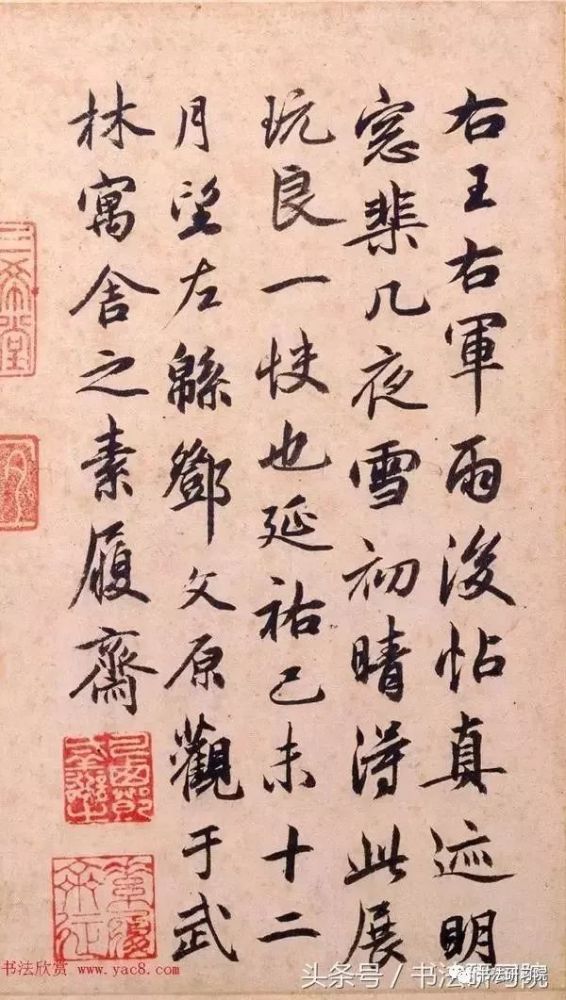 右王右軍雨後帖真迹明
窓棐几夜雪初晴得此展
玩良一快也延祐己未十二
月望左緜鄧文原觀于武
林寓舍之素履齋
三希堂
书法欣赏 www.yac8.com
头条号／书法研习院